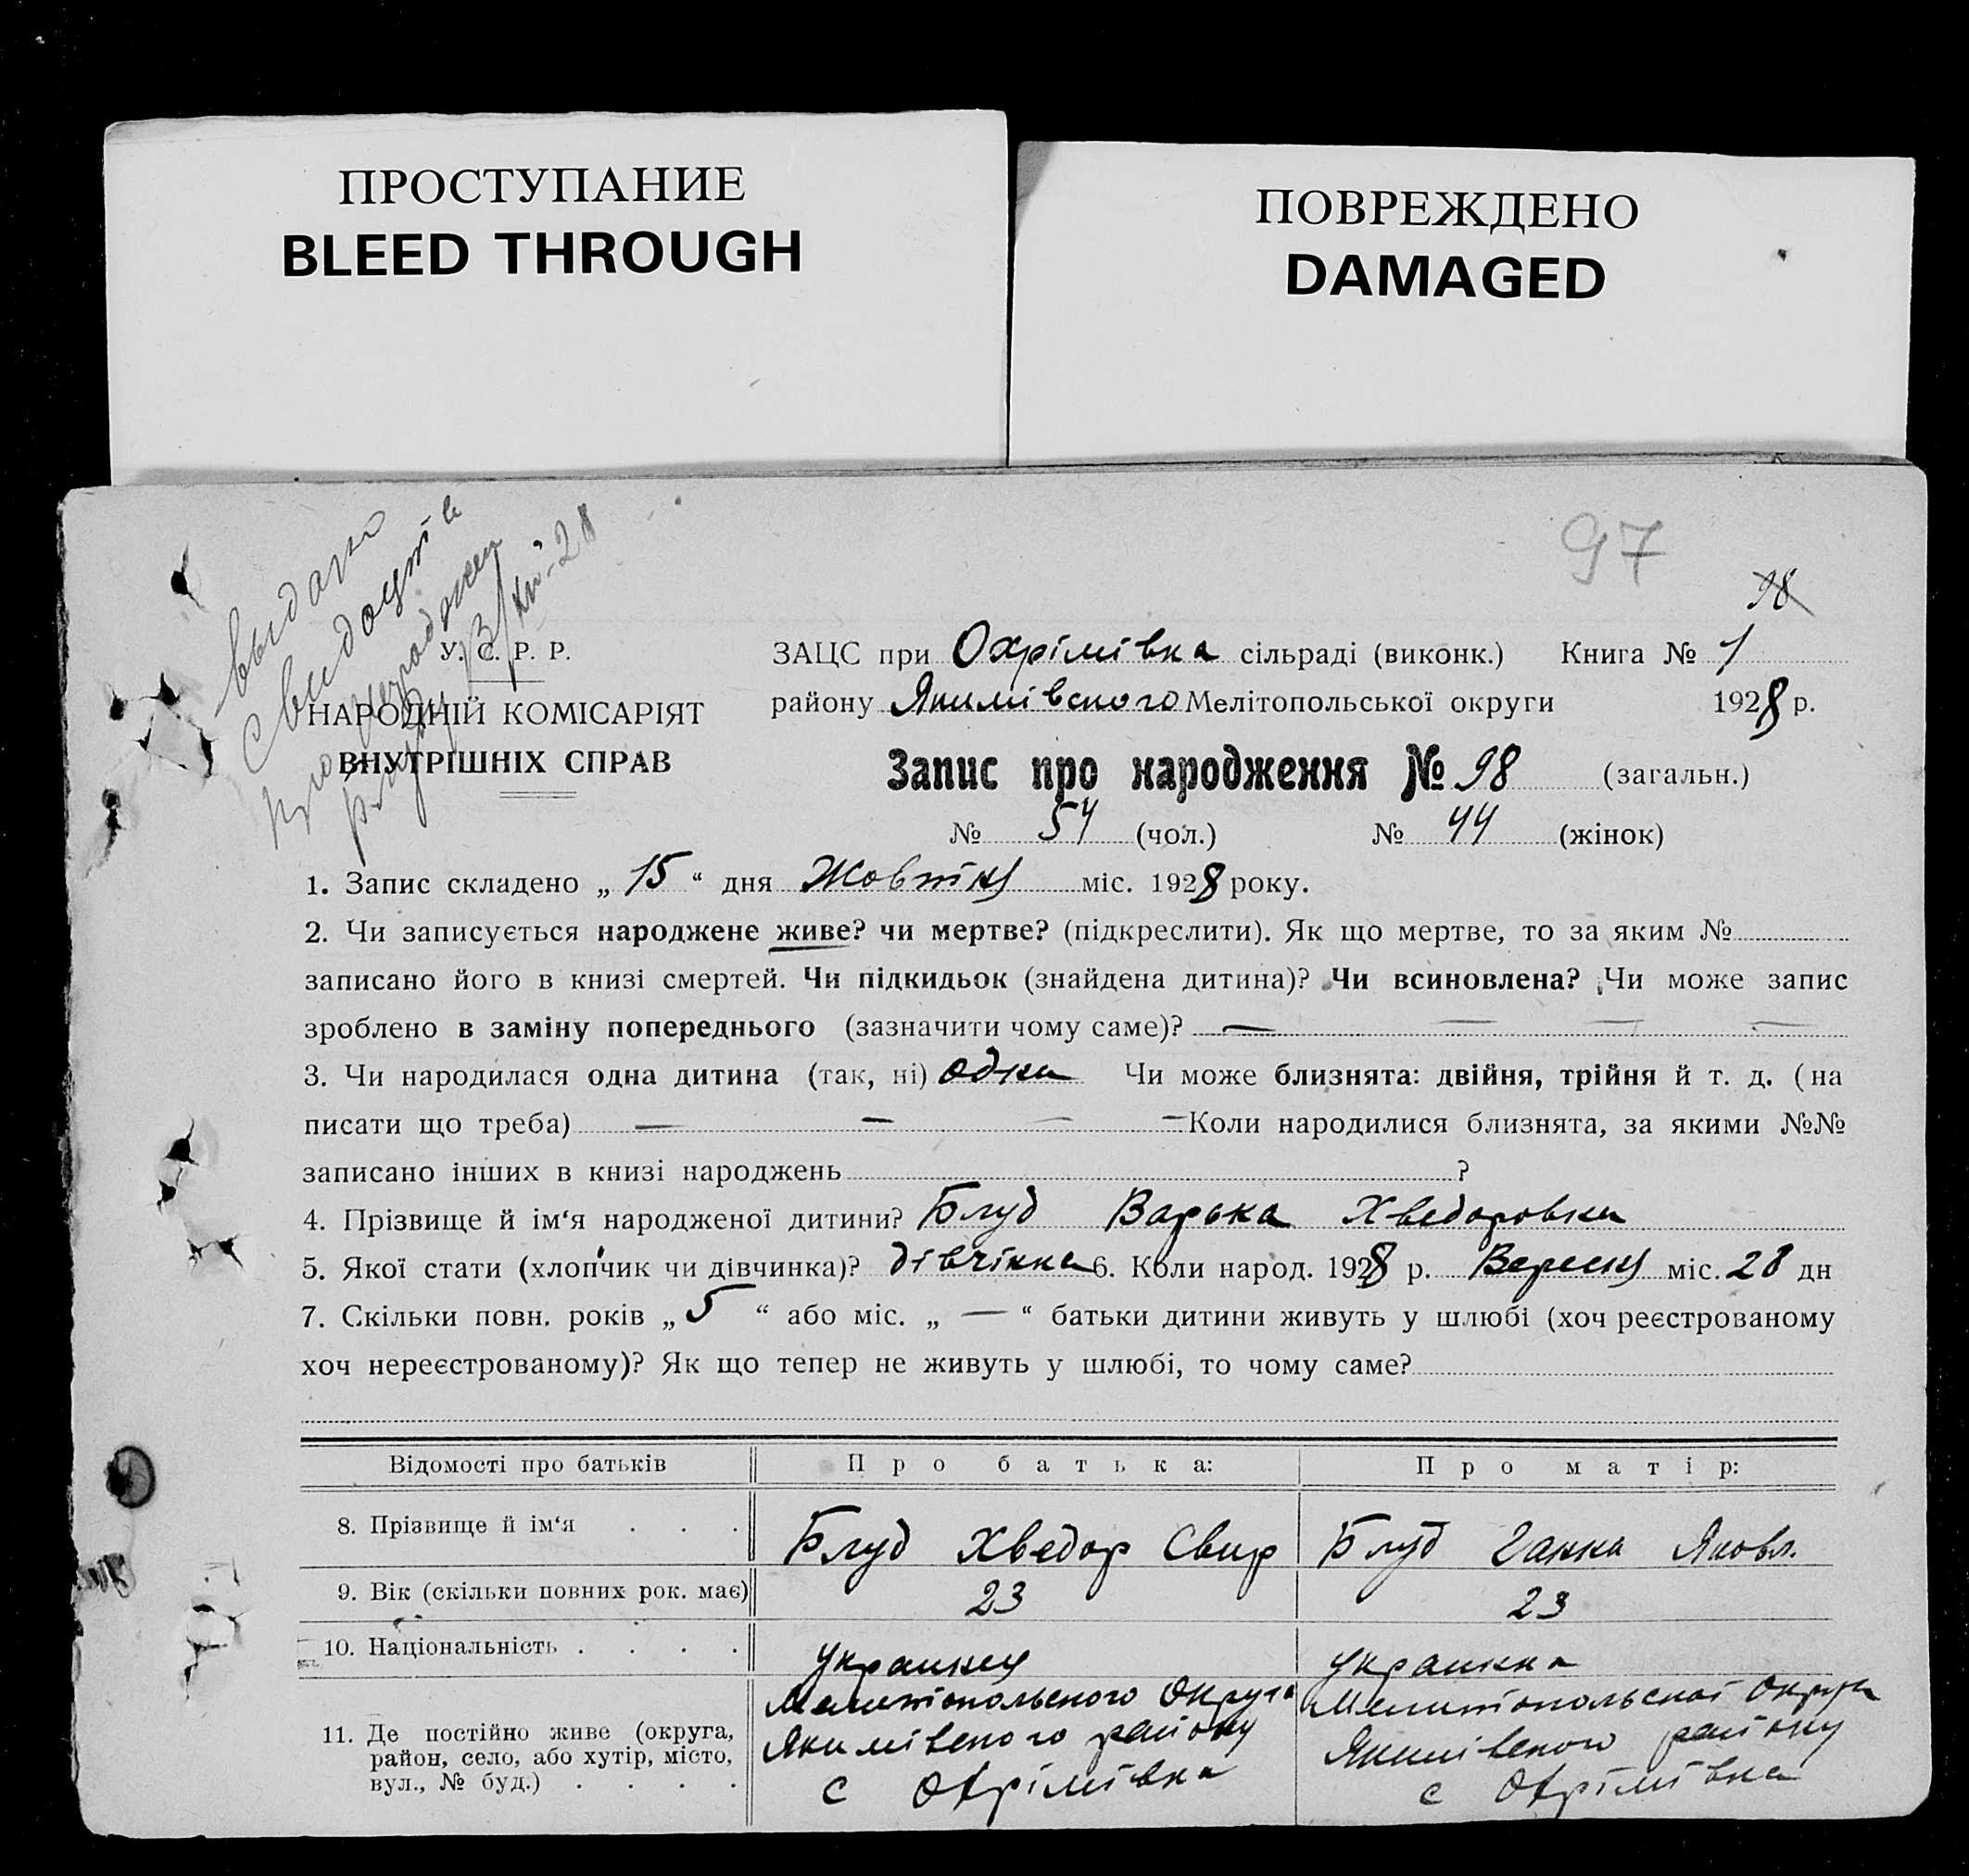 ПРОСТУПАНИЕ
BLEED THROUGH
ПОВРЕЖДЕНО
DAMAGED
97
98
выдано
свидоцтв
про
народжен
У. С. Р. Р.
НАРОДНІЙ КОМІСАРІЯТ
ВНУТРІШНІХ СПРАВ
ЗАЦС при Охрімівка сільраді (виконк.) Книга № 1
району Якимівского Мелітопольської округи 1928 р.
Запис про народження № 98 (загальн.)
№ 54 (чол.) № 44 (жінок)
1. Запис складено „ 15 “ дня Жовтня міс. 1928 року.
2. Чи записується народжене живе? чи мертве? (підкреслити). Як що мертве, то за яким №
записано його в книзі смертей. Чи підкидьок (знайдена дитина)? Чи всиновлена? Чи може запис
зроблено в заміну попереднього (зазначити чому саме)? — — — —
3. Чи народилася одна дитина (так, ні) одна Чи може близнята: двійня, трійня й т. д. (на
писати що треба) — — — — Коли народилися близнята, за якими №№
записано інших в книзі народжень ?
4. Прізвище й ім‘я народженої дитини? Блуд Варька Хведоровка
5. Якої стати (хлопчик чи дівчинка)? дівчінка 6. Коли народ. 1928 р. Вересня міс. 28 дн
7. Скільки повн. років „ 5 “ або міс. „ — “ батьки дитини живуть у шлюбі (хоч реєстрованому
хоч нереєстрованому)? Як що тепер не живуть у шлюбі, то чому саме?
Відомості про батьків Про батька: Про матір:
8. Прізвище й ім‘я . . . Блуд Хведор Свир Блуд Ганна Яковл.
9. Вік (скільки повних рок. має) 23 23
10. Національність . . . . украинец украинка
11. Де постійно живе (округа,
район, село, або хутір, місто,
вул., № буд.) . . . .
Мелитопольского Округа
Якимівского району
с Охрімівка
Мелитопольскоі Округи
Якимівского району
с Охрімівка